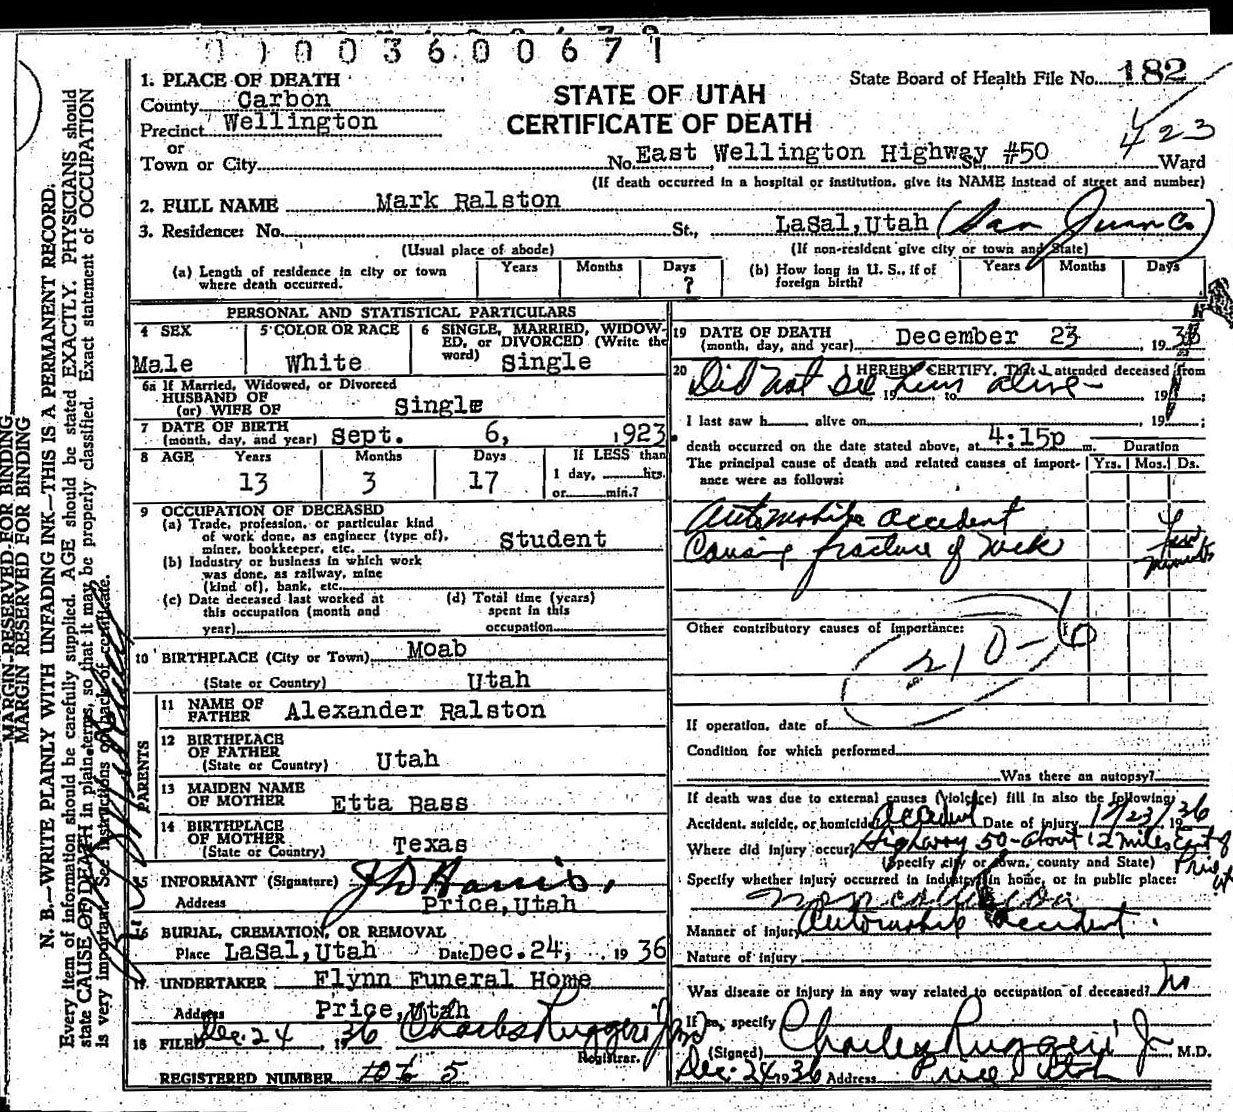 01003600671
1. PLACE OF DEATH
County Carbon
Precinct Wellington
or
Town or City
STATE OF UTAH
CERTIFICATE OF DEATH
State Board of Health File No. 182
423
No. East Wellington Highway #50 St. Ward
(If death occurred in a hospital or institution, give its NAME instead of street and number)
2. FULL NAME Mark Ralston
3. Residence: No. St., LaSal, Utah (San Juan Co)
(Usual place of abode) (If non-resident give city or town and State)
(a) Length of residence in city or town where death occurred. Years Months Days ?
(b) How long in U. S., if of foreign birth? Years Months Days
PERSONAL AND STATISTICAL PARTICULARS
4 SEX Male
5 COLOR OR RACE White
6 SINGLE, MARRIED, WIDOWED, or DIVORCED (Write the word) Single
6a If Married, Widowed, or Divorced
HUSBAND OF
(or) WIFE OF Single
7 DATE OF BIRTH
(month, day, and year) Sept. 6, 1923.
8 AGE Years Months Days If LESS than
13 3 17 1 day, hrs.
or min.?
9 OCCUPATION OF DECEASED
(a) Trade, profession, or particular kind
of work done, as engineer (type of),
miner, bookkeeper, etc. Student
(b) Industry or business in which work
was done, as railway, mine
(kind of), bank, etc.
(c) Date deceased last worked at
this occupation (month and
year)
(d) Total time (years)
spent in this
occupation
10 BIRTHPLACE (City or Town) Moab
(State or Country) Utah
PARENTS
11 NAME OF
FATHER Alexander Ralston
12 BIRTHPLACE
OF FATHER
(State or Country) Utah
13 MAIDEN NAME
OF MOTHER Etta Bass
14 BIRTHPLACE
OF MOTHER
(State or Country) Texas
15 INFORMANT (Signature) J D Harris.
Address Price, Utah
16 BURIAL, CREMATION, OR REMOVAL
Place LaSal, Utah Date Dec. 24, 1936
17 UNDERTAKER Flynn Funeral Home
Address Price, Utah
18 FILED Dec. 24, 1936 Charles Ruggeri Jr MD
Registrar.
REGISTERED NUMBER 5
19 DATE OF DEATH
(month, day, and year) December 23, 1936
20 I HEREBY CERTIFY, That I attended deceased from
Did not see him alive 19 to 19 ;
I last saw h alive on , 19 ;
death occurred on the date stated above, at 4:15p m. Duration
The principal cause of death and related causes of importance were as follows: Yrs. Mos. Ds.
Automobile accident
Causing fracture of neck few minutes
Other contributory causes of importance:
210-6
If operation, date of
Condition for which performed
Was there an autopsy?
If death was due to external causes (violence) fill in also the following:
Accident, suicide, or homicide Accident Date of injury 12/23/1936
Where did injury occur? Highway 50 - about 12 miles East of Price Ut
(Specify city or town, county and State)
Specify whether injury occurred in industry, in home, or in public place:
non collision
Manner of injury Automobile Accident.
Nature of injury
Was disease or injury in any way related to occupation of deceased? no
If so, specify
(Signed) Charles Ruggeri Jr M.D.
Dec. 24 1936 Address Price, Utah
MARGIN RESERVED FOR BINDING
MARGIN RESERVED FOR BINDING
N. B.—WRITE PLAINLY WITH UNFADING INK—THIS IS A PERMANENT RECORD.
Every item of information should be carefully supplied. AGE should be stated EXACTLY. PHYSICIANS should
state CAUSE OF DEATH in plain terms, so that it may be properly classified. Exact statement of OCCUPATION
is very important. See instructions on back of certificate.